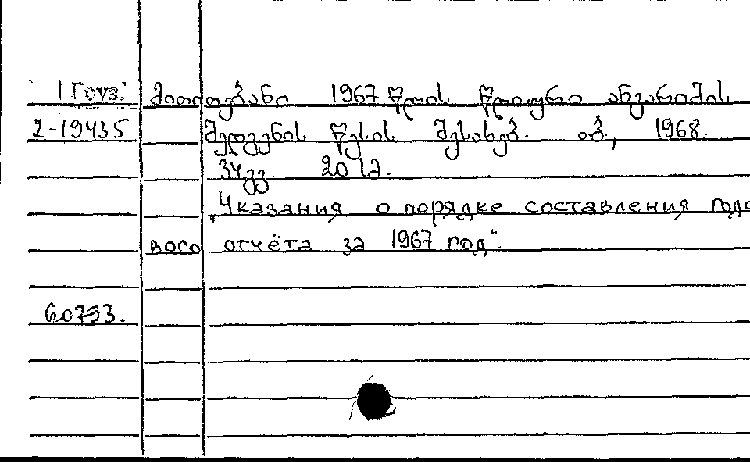 1 Груз. მითითებანი 1967 წლის წლიური ანგარიშის
2-19435 შედგენის წესის შესახებ. თბ., 1968.
34 გვ 20 სმ.
„Указания о порядке составления годо
вого отчёта за 1967 год“.
60793.